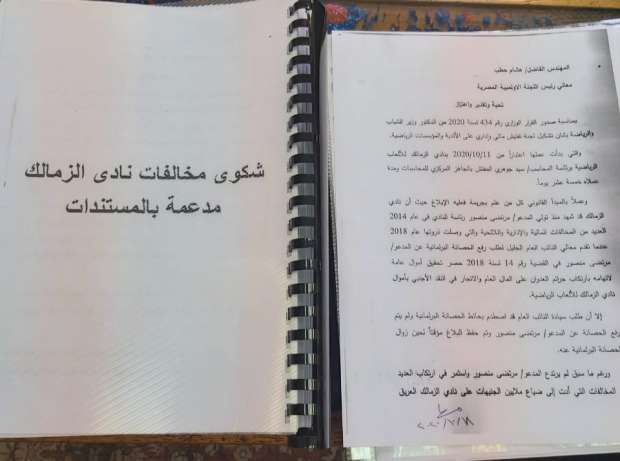 شكوى مخالفات نادى الزمالك
مدعمة بالمستندات
المهندس الفاضل/ هشام حطب
معالي رئيس اللجنة الاولمبية المصرية
تحية وتقدير واعتزاز
بمناسبة صدور القرار الوزاري رقم 434 لسنة 2020 من الدكتور وزير الشباب
والرياضة بشان تشكيل لجنة تفتيش مالي وإداري على الأندية والمؤسسات الرياضية.
والتي بدأت عملها اعتباراً من 2020/10/11 بنادي الزمالك للألعاب
الرياضية برئاسة المحاسب/ سيد جوهري المفتش بالجهاز المركزي للمحاسبات ومدة
عملها خمسة عشر يوماً.
وعملاً بالمبدأ القانوني كل من علم بجريمة فعليه الإبلاغ حيث أن نادي
الزمالك قد شهد منذ تولي المدعو/ مرتضى منصور رئاسة النادي في عام 2014
العديد من المخالفات المالية والإدارية واللائحية والتي وصلت ذروتها عام 2018
عندما تقدم معالي النائب العام الجليل بطلب رفع الحصانة البرلمانية عن المدعو/
مرتضى منصور في القضية رقم 14 لسنة 2018 حصر تحقيق أموال عامة
لاتهامه بأرتكاب جرائم العدوان على المال العام والاتجار في النقد الأجنبي بأموال
نادي الزمالك للألعاب الرياضية.
إلا أن طلب سيادة النائب العام قد اصطدم بحائط الحصانة البرلمانية ولم يتم
رفع الحصانة عن المدعو/ مرتضى منصور وتم حفظ البلاغ مؤقتاً لحين زوال
الحصانة البرلمانية عنه.
ورغم ما سبق لم يرتدع المدعو/ مرتضى منصور واستمر في ارتكاب العديد
المخالفات التي أدت إلى ضياع ملايين الجنيهات على نادي الزمالك العريق